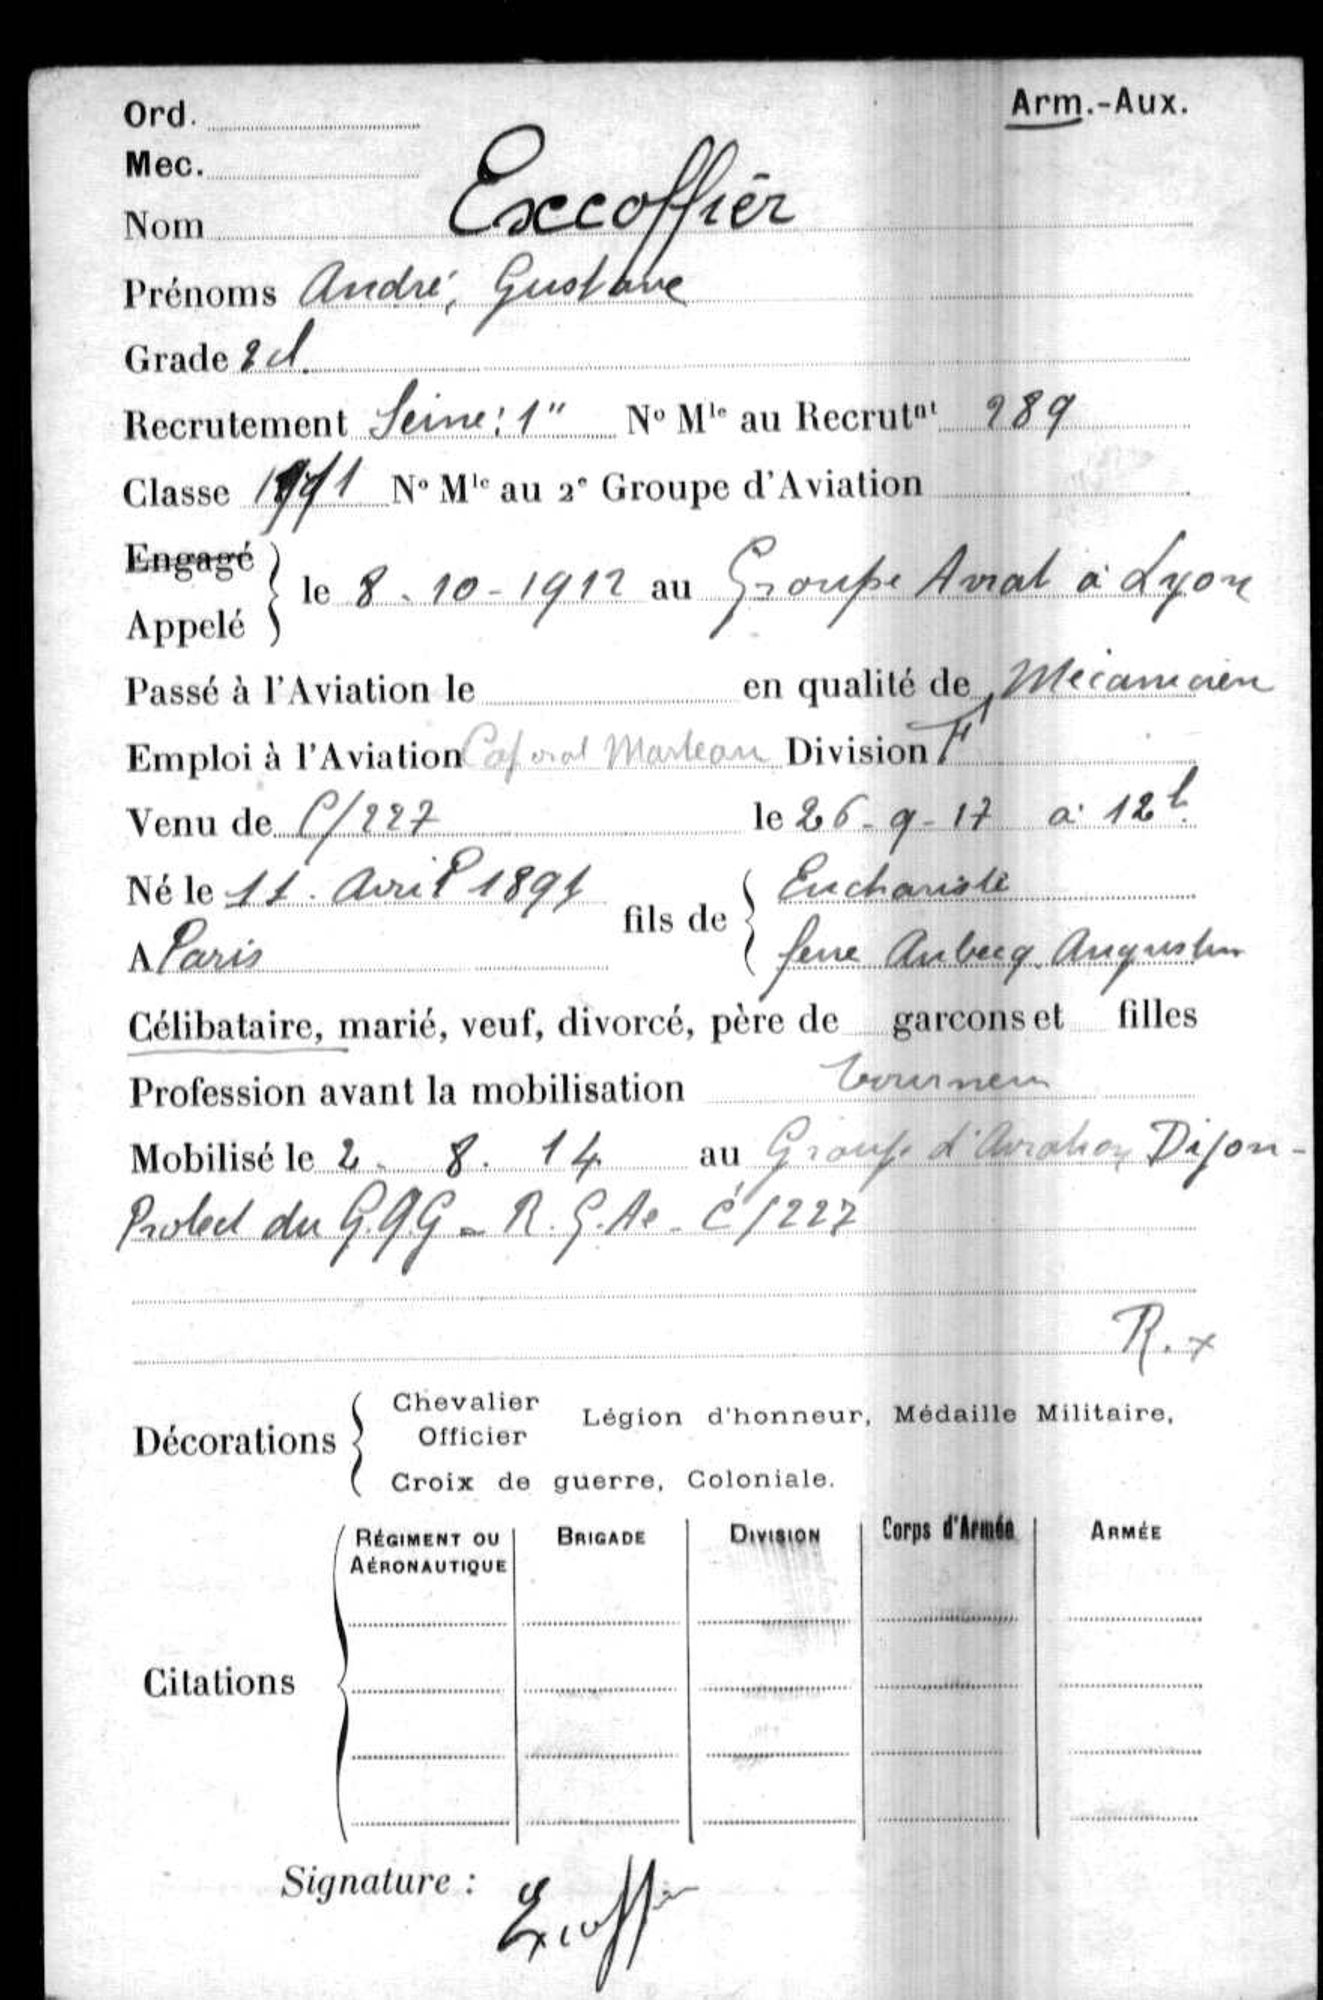 Ord.
Arm.-Aux.
Mec.
Nom Excoffier
Prénoms André, Gustave
Grade 2 cl.
Recrutement Seine: 1" No Mle au Recrutnt 289
Classe 1911 No Mle au 2e Groupe d'Aviation
Engagé
Appelé } le 8-10-1912 au Groupe Aviat à Lyon
Passé à l'Aviation le en qualité de Mécanicien
Emploi à l'Aviation Caporal Marteau Division
Venu de C/227 le 26-9-17 à 12h
Né le 11. Avril 1891 fils de { Euchariste
A Paris Aubecq Augustin
Célibataire, marié, veuf, divorcé, père de garcons et filles
Profession avant la mobilisation tourneur
Mobilisé le 2. 8. 14 au Groupe d'Aviation Dijon-
Protect du G.Q.G - R.G.Ae - C/227
R. x
Décorations { Chevalier
Officier Légion d'honneur, Médaille Militaire,
Croix de guerre, Coloniale.
Citations { RÉGIMENT OU AÉRONAUTIQUE BRIGADE DIVISION Corps d'Armée ARMÉE
Signature : Excoffier